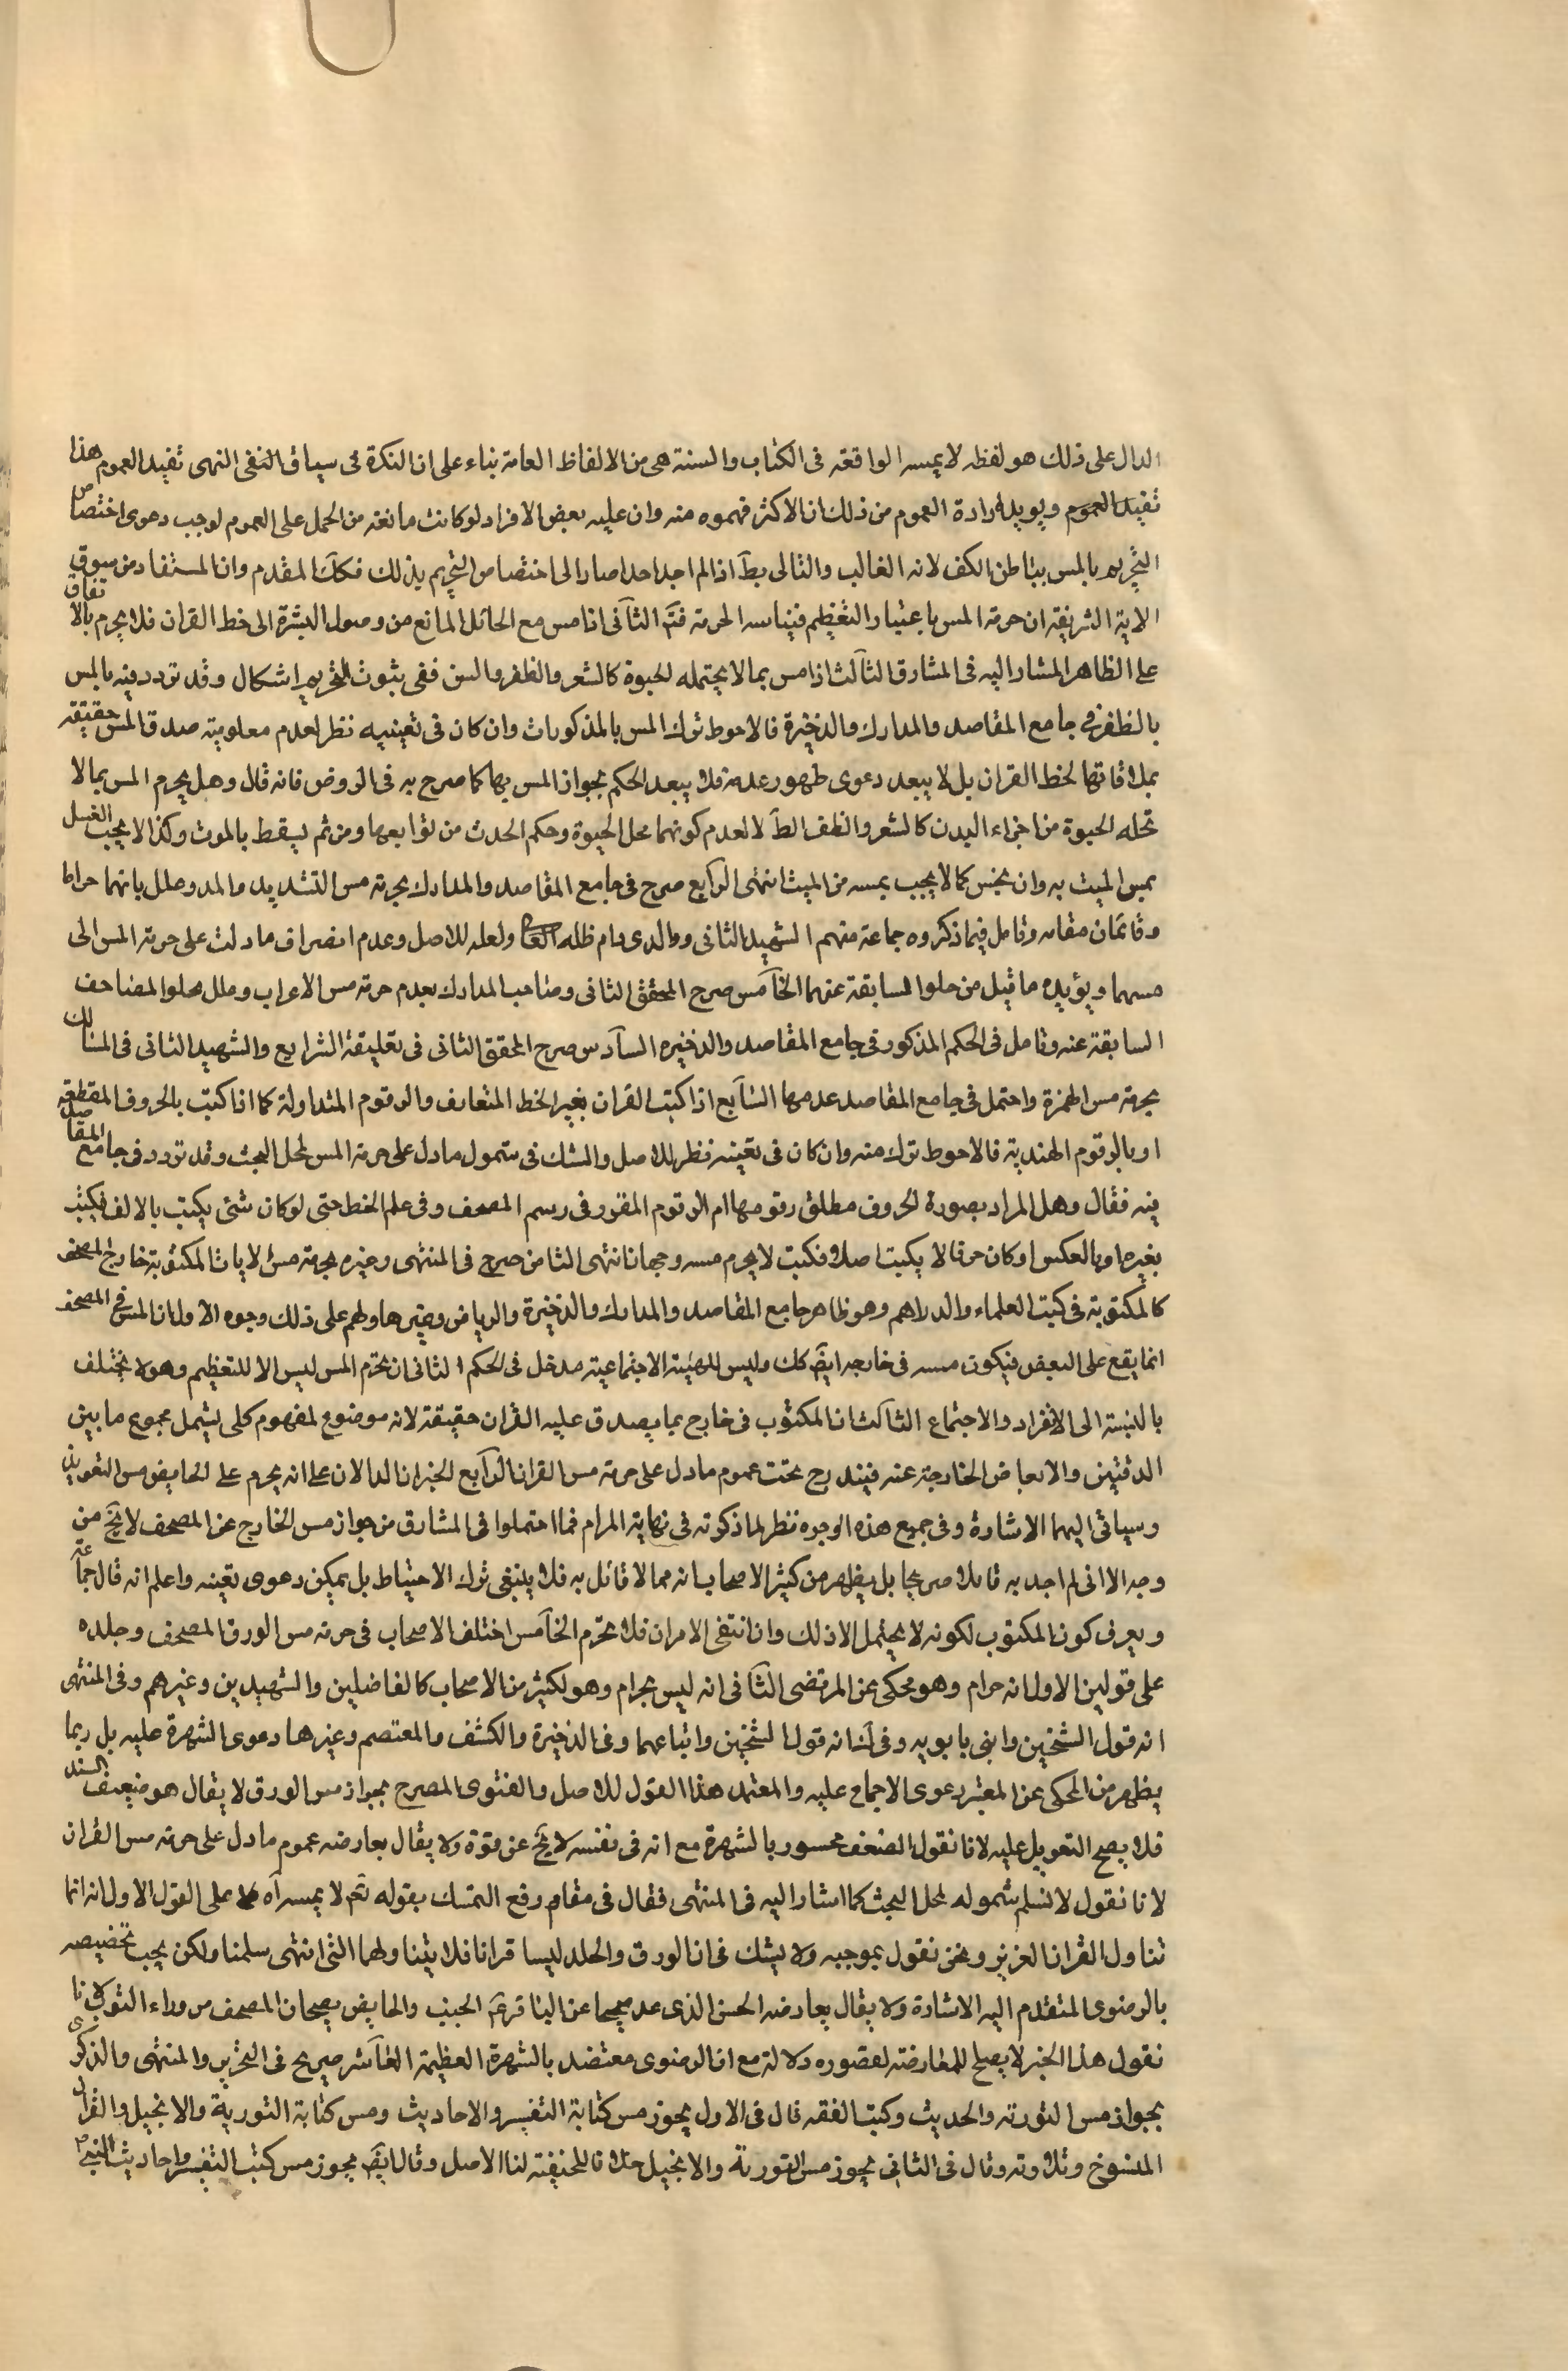 الدال على ذلك هو لفظه لا يمسه الواقعة فى الكتاب والسنة هى من الالفاظ العامة بناء على ان النكرة فى سياق النفى النهى تفيد العموم هذا
تفيد العموم ويويد ارادة العموم من ذلك ان الاكثر فهموه منه وان غلبه بعض الافراد لو كانت مانعة من الحمل على العموم لوجب دعوى اختصاص
التحريم بالمس بباطن الكف لانه الغالب والتالى بط اذ لم اجد احدا صار الى اختصاص التحريم بذلك فكك المقدم وان المستفاد من سوق
الاية الشريفة ان حرمة المس باعتبار التعظيم فيناسبه الحرمة فتم الثانى اذا مس مع الحائل المانع من وصول البشرة الى خط القران فلا يحرم بالاتفاق
على الظاهر المشار اليه فى المشارق الثالث اذا مس بما لا يحتمله الحيوة كالشعر والظفر والسن ففى ثبوت التحريم اشكال وقد تردد فيه بالمس
بالظفر فى جامع المقاصد والمدارك والذخيرة فالاحوط ترك المس بالمذكورات وان كان فى تعيينه نظر لعدم معلومية صدق المس حقيقة
بملاقاتها لخط القران بل لا يبعد دعوى ظهور عدمه فلا يبعد الحكم بجواز المس بها كما صرح به فى الروض فانه قال وهل يحرم المس بما لا
تحله الحيوة من اجزاء البدن كالشعر والظفر الظ لا لعدم كونهما محل الحيوة وحكم الحدث من توابعها ومن ثم يسقط بالموت وكذا لا يجب الغسل
بمس الميت به وان نجس كما لا يجب بمسه من الميت انتهى الرابع صرح فى جامع المقاصد والمدارك بحرمة مس التشديد والمد وعلل بانهما جزاها
وقائمان مقامه وتامل فيما ذكروه جماعة منهم الشهيد الثانى ووالدى دام ظله العالى ولعله للاصل وعدم انصراف ما دلت على حرمة المس الى
مسهما ويؤيده ما قيل من خلو السابقة عنهما الخامس صرح المحقق الثانى وصاحب المدارك بعدم حرمة مس الاعراب وعلل بخلو المصاحف
السابقة عنه وتامل فى الحكم المذكور فى جامع المقاصد والذخيره السادس صرح المحقق الثانى فى تعليقة الشرايع والشهيد الثانى فى المسالك
بحرمة مس الهمزة واحتمل فى جامع المقاصد عدمها السابع اذا كتب القران بغير الخط المتعارف والرقوم المتداولة كما اذا كتب بالحروف المقطعة
او بالرقوم الهندية فالاحوط ترك منه وان كان فى تعينه نظر للاصل والشك فى شمول ما دل على حرمة المس لمحل البحث وقد تردد فى جامع المقاصد
فيه فقال وهل المراد بصورة الحروف مطلق رقومها ام الرقوم المقرر فى رسم المصحف وفى علم الخط حتى لو كان شئ يكتب بالالف فكتب
بغيرها وبالعكس او كان حرفا لا يكتب اصلا فكتب لا يحرم مسه وجهان انتهى الثامن صرح فى المنتهى وغيره بحرمة مس الايات المكتوبة خارج المصحف
كالمكتوبة فى كتب العلماء والدراهم وهو ظاهر جامع المقاصد والمدارك والذخيرة والرياض وغيرها ولهم على ذلك وجوه الاول ان المس فى المصحف
انما يقع على البعض فيكون مسه فى خارجه ايض كك وليس للهيئة الاجتماعية مدخل فى الحكم الثانى ان تحرم المس ليس الا للتعظيم وهو لا يختلف
بالنسبة الى الانفراد والاجتماع الثالث ان المكتوب فى خارج بما يصدق عليه القران حقيقة لانه موضوع لمفهوم كلى يشمل مجموع ما بين
الدفتين والابعاض الخارجة عنه فيندرج تحت عموم ما دل على حرمة مس القران الرابع الخبران الدالان على انه يحرم على الحايض مس التعويذ
وسياتى اليهما الاشارة وفى جميع هذه الوجوه نظر لما ذكرته فى نهاية المرام فما احتملوا فى المشارق من جواز مس الخارج عن المصحف لا يخ من
وجه الا انى لم اجد به قائلا صريحا بل يظهر من كثير الاصحاب انه مما لا قائل به فلا ينبغى ترك الاحتياط بل يمكن دعوى تعينه واعلم انه قال جماعة
ويعرف كون المكتوب لكونه لا يحتمل الا ذلك وان انتفى الامران فلا تحرم الخامس اختلف الاصحاب فى حرمة مس الورق المصحف وجلده
على قولين الاول انه حرام وهو محكى عن المرتضى الثانى انه ليس بحرام وهو لكثير من الاصحاب كالفاضلين والشهيدين وغيرهم وفى المنتهى
انه قول الشيخين وابنى بابويه وفى ك انه قول الشيخين واتباعهما وفى الذخيرة والكشف والمعتصم وغيرها دعوى الشهرة عليه بل ربما
يظهر من المحكى عن المعتبر دعوى الاجماع عليه والمعتمد هذا القول للاصل والفتوى المصرح بجواز مس الورق لا يقال هو ضعيف السند
فلا يصح التعويل عليه لانا نقول الضعف مجبور بالشهرة مع انه فى نفسه لا يخ عن قوة ولا يقال يعارضه عموم ما دل على حرمة مس القران
لانا نقول لا نسلم شموله لمحل البحث كما اشار اليه فى المنتهى فقال فى مقام رفع التمسك بقوله تع لا يمسه اه على القول الاول انه انما
تناول القران العزيز ونحن نقول بموجبه ولا يشك فى ان الورق والجلد ليسا قرانا فلا يتناولهما النهى انتهى سلمنا ولكن يجب تخصيصه
بالرضوى المتقدم اليه الاشارة ولا يقال يعارضه الحسن الذى عد صحيحا عن الباقر ع الجنب والحايض يصحان المصحف من وراء الثوب لانا
نقول هذا الخبر لا يصلح للمعارضة لقصوره دلالة مع ان الرضوى معتضد بالشهرة العظيمة العاشر صرح فى التحرير والمنتهى والذكرى
بجواز مس التورية والحديث وكتب الفقه قال فى الاول يجوز مس كتابة التفسير والاحاديث ومس كتابة التورية والانجيل والقران
المنسوخ وتلاوته وقال فى الثانى يجوز مس التورية والانجيل خلافا للحنفية لنا الاصل وقال ايض يجوز مس كتب التفسير واحاديث النبى ص